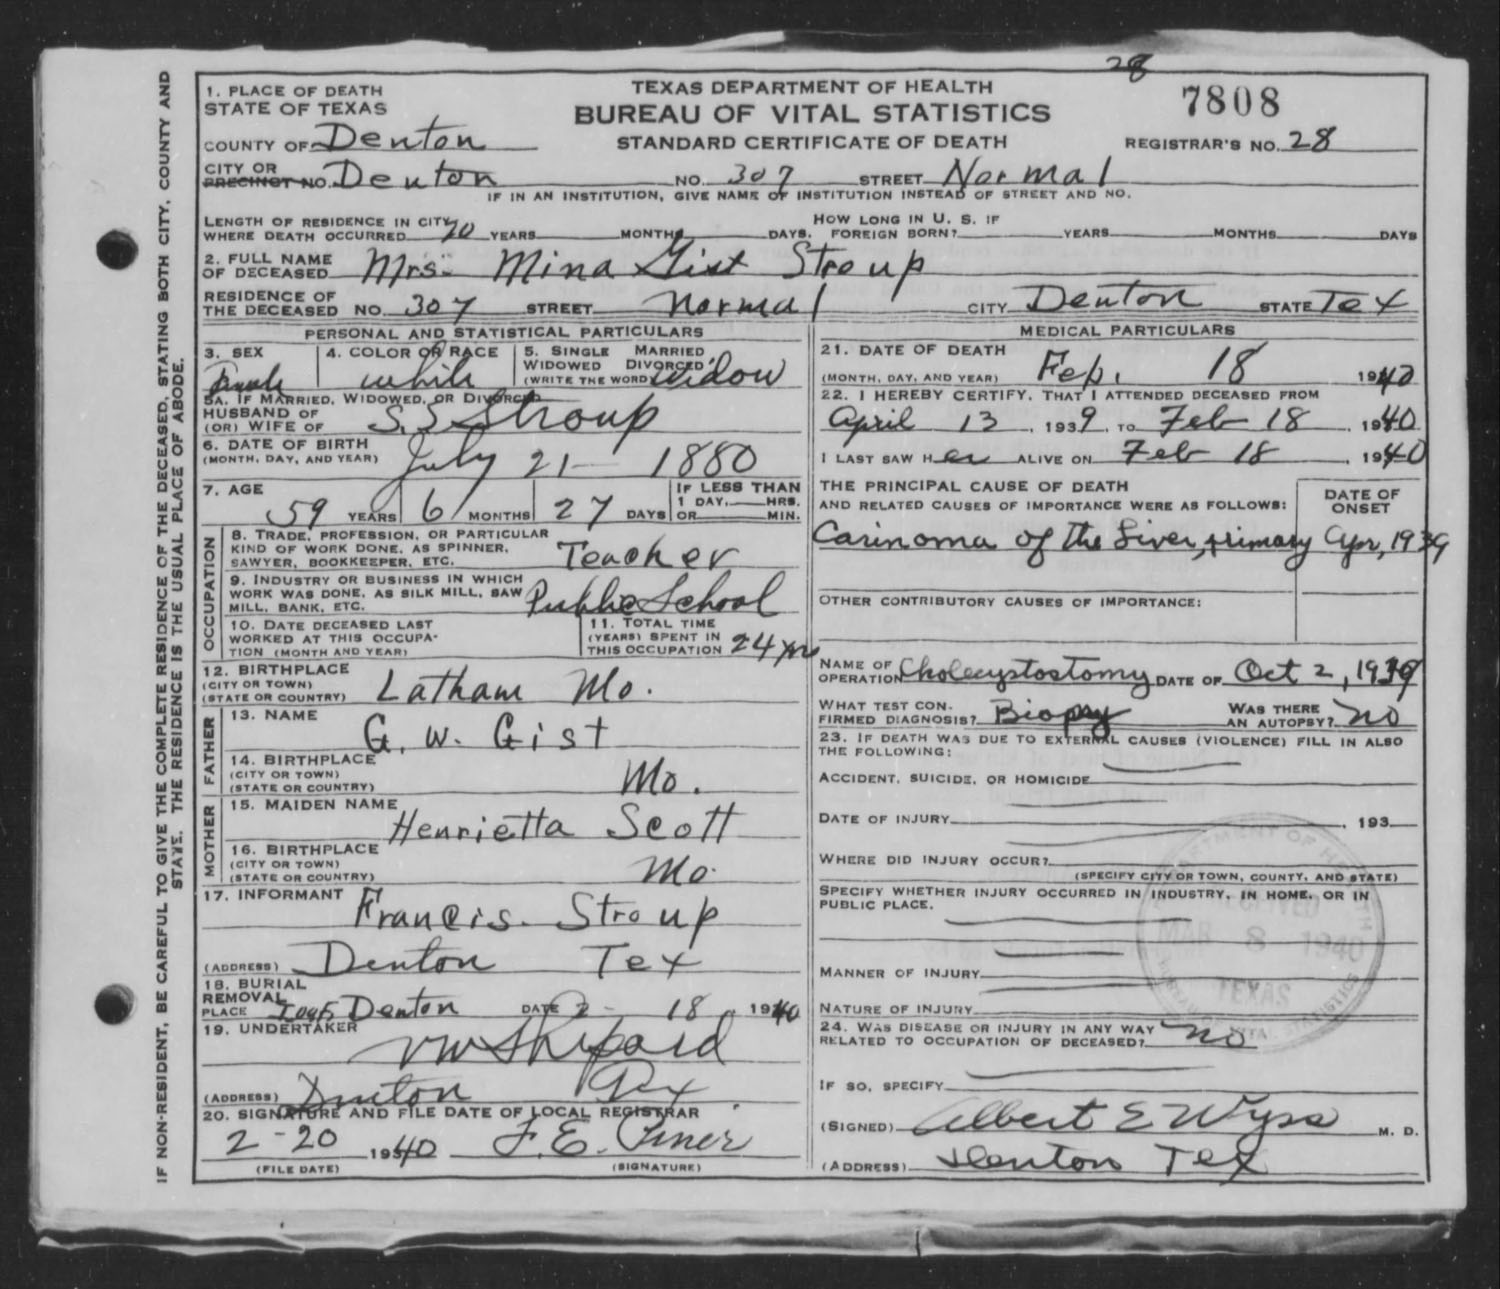 28
TEXAS DEPARTMENT OF HEALTH
BUREAU OF VITAL STATISTICS
STANDARD CERTIFICATE OF DEATH
7808
REGISTRAR'S NO. 28
1. PLACE OF DEATH
STATE OF TEXAS
COUNTY OF Denton
CITY OR
PRECINCT NO. Denton NO. 307 STREET Normal
IF IN AN INSTITUTION, GIVE NAME OF INSTITUTION INSTEAD OF STREET AND NO.
LENGTH OF RESIDENCE IN CITY
WHERE DEATH OCCURRED 20 YEARS MONTHS DAYS. HOW LONG IN U. S. IF FOREIGN BORN? YEARS MONTHS DAYS
2. FULL NAME
OF DECEASED Mrs. Mina Gist Stroup
RESIDENCE OF
THE DECEASED NO. 307 STREET Normal CITY Denton STATE Tex
PERSONAL AND STATISTICAL PARTICULARS
3. SEX Female 4. COLOR OR RACE white 5. SINGLE MARRIED WIDOWED DIVORCED (WRITE THE WORD) widow
5A. IF MARRIED, WIDOWED, OR DIVORCED
HUSBAND OF
(OR) WIFE OF S.S. Stroup
6. DATE OF BIRTH
(MONTH, DAY, AND YEAR) July 21 - 1880
7. AGE 59 YEARS 6 MONTHS 27 DAYS IF LESS THAN 1 DAY, HRS. OR MIN.
OCCUPATION
8. TRADE, PROFESSION, OR PARTICULAR
KIND OF WORK DONE, AS SPINNER,
SAWYER, BOOKKEEPER, ETC. Teacher
9. INDUSTRY OR BUSINESS IN WHICH
WORK WAS DONE, AS SILK MILL, SAW
MILL, BANK, ETC. Public School
10. DATE DECEASED LAST
WORKED AT THIS OCCUPA-
TION (MONTH AND YEAR)
11. TOTAL TIME
(YEARS) SPENT IN
THIS OCCUPATION 24 yrs
12. BIRTHPLACE
(CITY OR TOWN)
(STATE OR COUNTRY) Latham Mo.
FATHER
13. NAME G. W. Gist
14. BIRTHPLACE
(CITY OR TOWN)
(STATE OR COUNTRY) Mo.
MOTHER
15. MAIDEN NAME Henrietta Scott
16. BIRTHPLACE
(CITY OR TOWN)
(STATE OR COUNTRY) Mo.
17. INFORMANT Francis. Stroup
(ADDRESS) Denton Tex
18. BURIAL
REMOVAL
PLACE Denton DATE 2 - 18 1940
19. UNDERTAKER Shepard
(ADDRESS) Denton Tex
20. SIGNATURE AND FILE DATE OF LOCAL REGISTRAR
2-20 1940 J. E. Piner
(FILE DATE) (SIGNATURE)
MEDICAL PARTICULARS
21. DATE OF DEATH
(MONTH, DAY, AND YEAR) Feb. 18 1940
22. I HEREBY CERTIFY, THAT I ATTENDED DECEASED FROM
April 13, 1939, TO Feb 18, 1940
I LAST SAW Her ALIVE ON Feb 18, 1940
THE PRINCIPAL CAUSE OF DEATH
AND RELATED CAUSES OF IMPORTANCE WERE AS FOLLOWS: DATE OF ONSET
Carinoma of the Liver, primary Apr, 1939
OTHER CONTRIBUTORY CAUSES OF IMPORTANCE:
NAME OF
OPERATION Cholecystostomy DATE OF Oct 2, 1939
WHAT TEST CON-
FIRMED DIAGNOSIS? Biopsy WAS THERE AN AUTOPSY? no
23. IF DEATH WAS DUE TO EXTERNAL CAUSES (VIOLENCE) FILL IN ALSO
THE FOLLOWING:
ACCIDENT, SUICIDE, OR HOMICIDE
DATE OF INJURY , 193
WHERE DID INJURY OCCUR?
(SPECIFY CITY OR TOWN, COUNTY, AND STATE)
SPECIFY WHETHER INJURY OCCURRED IN INDUSTRY, IN HOME, OR IN
PUBLIC PLACE.
MANNER OF INJURY
NATURE OF INJURY
24. WAS DISEASE OR INJURY IN ANY WAY
RELATED TO OCCUPATION OF DECEASED? no
IF SO, SPECIFY
(SIGNED) Albert E Wyss M. D.
(ADDRESS) Denton Tex
DEPARTMENT OF HEALTH
RECEIVED
MAR 8 1940
TEXAS
BUREAU OF VITAL STATISTICS
IF NON-RESIDENT, BE CAREFUL TO GIVE THE COMPLETE RESIDENCE OF THE DECEASED, STATING BOTH CITY, COUNTY AND
STATE. THE RESIDENCE IS THE USUAL PLACE OF ABODE.